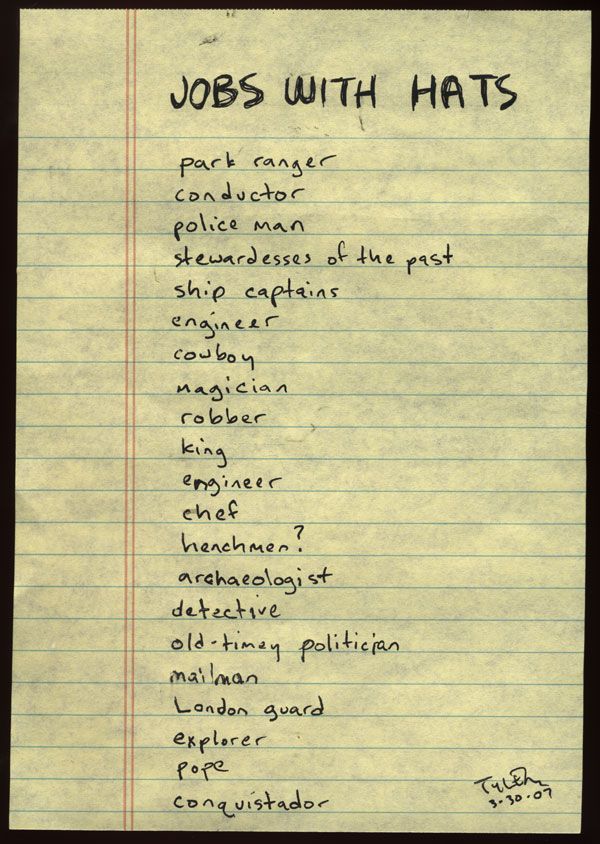 JOBS WITH HATS
park ranger
conductor
police man
stewardesses of the past
ship captains
engineer
cowboy
magician
robber
king
engineer
chef
henchmen?
archaeologist
detective
old-timey politician
mailman
London guard
explorer
pope
conquistador
3-30-07